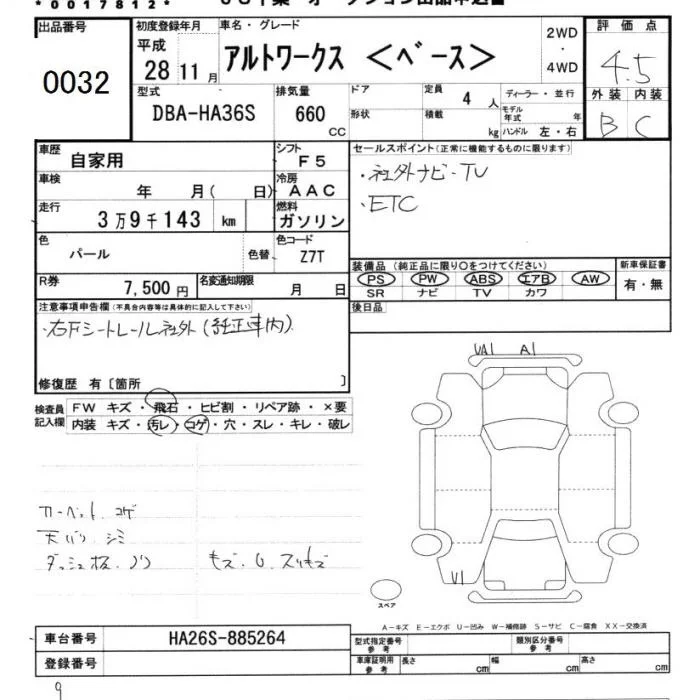 *0017812*
出品番号
0032
初度登録年月
平成
28 11 月
車名・グレード
アルトワークス <ベース>
2WD
・
4WD
評価点
4.5
外装 内装
B C
型式
DBA-HA36S
排気量
660
CC
ドア
形状
定員
4 人
積載
kg
ディーラー・並行
モデル年式 年
ハンドル 左・右
車歴
自家用
シフト
F5
車検
年 月( 日)
冷房
AAC
走行
3万9千143 km
燃料
ガソリン
色
パール
色替
色コード
Z7T
R券
7,500円
名変通知期限
月 日
セールスポイント(正常に機能するものに限ります)
・社外ナビ・TV
・ETC
装備品(純正品に限り○をつけてください)
PS PW ABS エアB AW
SR ナビ TV カワ
新車保証書
有・無
後日品
注意事項申告欄(不具合内容等は具体的に記入して下さい)
・右Fシートレール社外(純正車内)
修復歴 有〔箇所 〕
検査員記入欄
FW キズ・飛石・ヒビ割・リペア跡・×要
内装 キズ・汚レ・コゲ・穴・スレ・キレ・破レ
カーペット コゲ
天バリ シミ
ダッシュ板 ノリ
キズ・U スリキズ
A1
スペア
A-キズ E-エクボ U-凹み W-補修跡 S-サビ C-腐食 XX-交換済
車台番号
HA26S-885264
登録番号
型式指定番号
参考
類別区分番号
参考
車庫証明用
参考
長さ cm
幅 cm
高さ cm
9